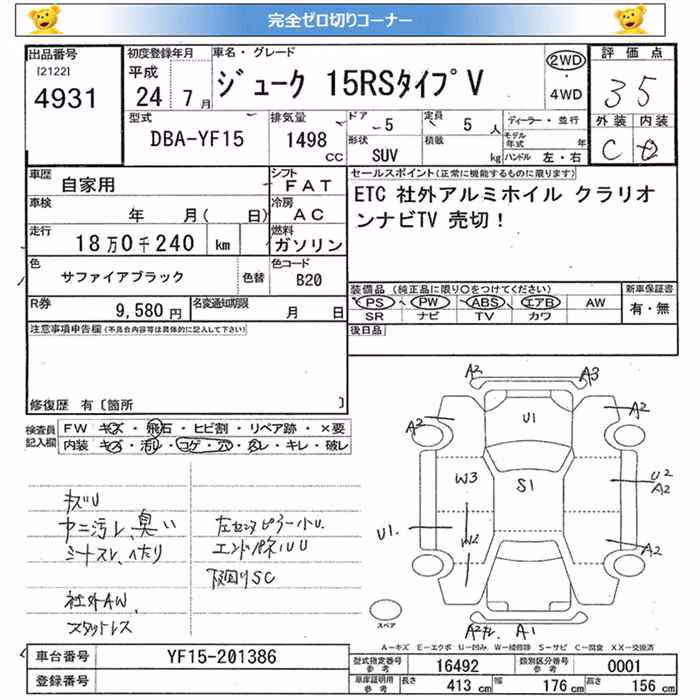 完全ゼロ切りコーナー
出品番号
[2122]
4931
初度登録年月
平成
24 7月
車名・グレード
ジューク 15RSタイプV
2WD
・
4WD
評価点
35
外装 内装
C
型式
DBA-YF15
排気量
1498
CC
ドア
5
定員
5 人
形状
SUV
積載
kg
ディーラー・並行
モデル年式 年
ハンドル 左・右
車歴
自家用
シフト
FAT
車検
年 月( 日)
冷房
AC
走行
18万0千240 km
燃料
ガソリン
色
サファイアブラック
色替
色コード
B20
R券
9,580 円
名変通知期限
月 日
セールスポイント(正常に機能するものに限ります)
ETC 社外アルミホイル クラリオ
ンナビTV 売切!
装備品 (純正品に限り○をつけてください)
PS PW ABS エアB AW
SR ナビ TV カワ
新車保証書
有・無
注意事項申告欄(不具合内容等は具体的に記入して下さい)
後日品
修復歴 有〔箇所 〕
検査員
記入欄
FW キズ・飛石・ヒビ割・リペア跡・×要
内装 キズ・汚レ・コゲ・穴・スレ・キレ・破レ
キズU
ヤニ汚レ、臭い
シートスレ、へたり
社外AW、
スタットレス
左センタピラー小U、
エンドパネルUU
下回りSC
A2
A3
A2
U1
A2
W3
S1
U2
A2
U1
W2
A2
A2
A1
スペア
A=キズ E=エクボ U=凹み W=補修跡 S=サビ C=腐食 XX=交換済
車台番号
YF15-201386
登録番号
型式指定番号
参考
16492
類別区分番号
参考
0001
車庫証明用
参考
長さ
413 cm
幅
176 cm
高さ
156 cm